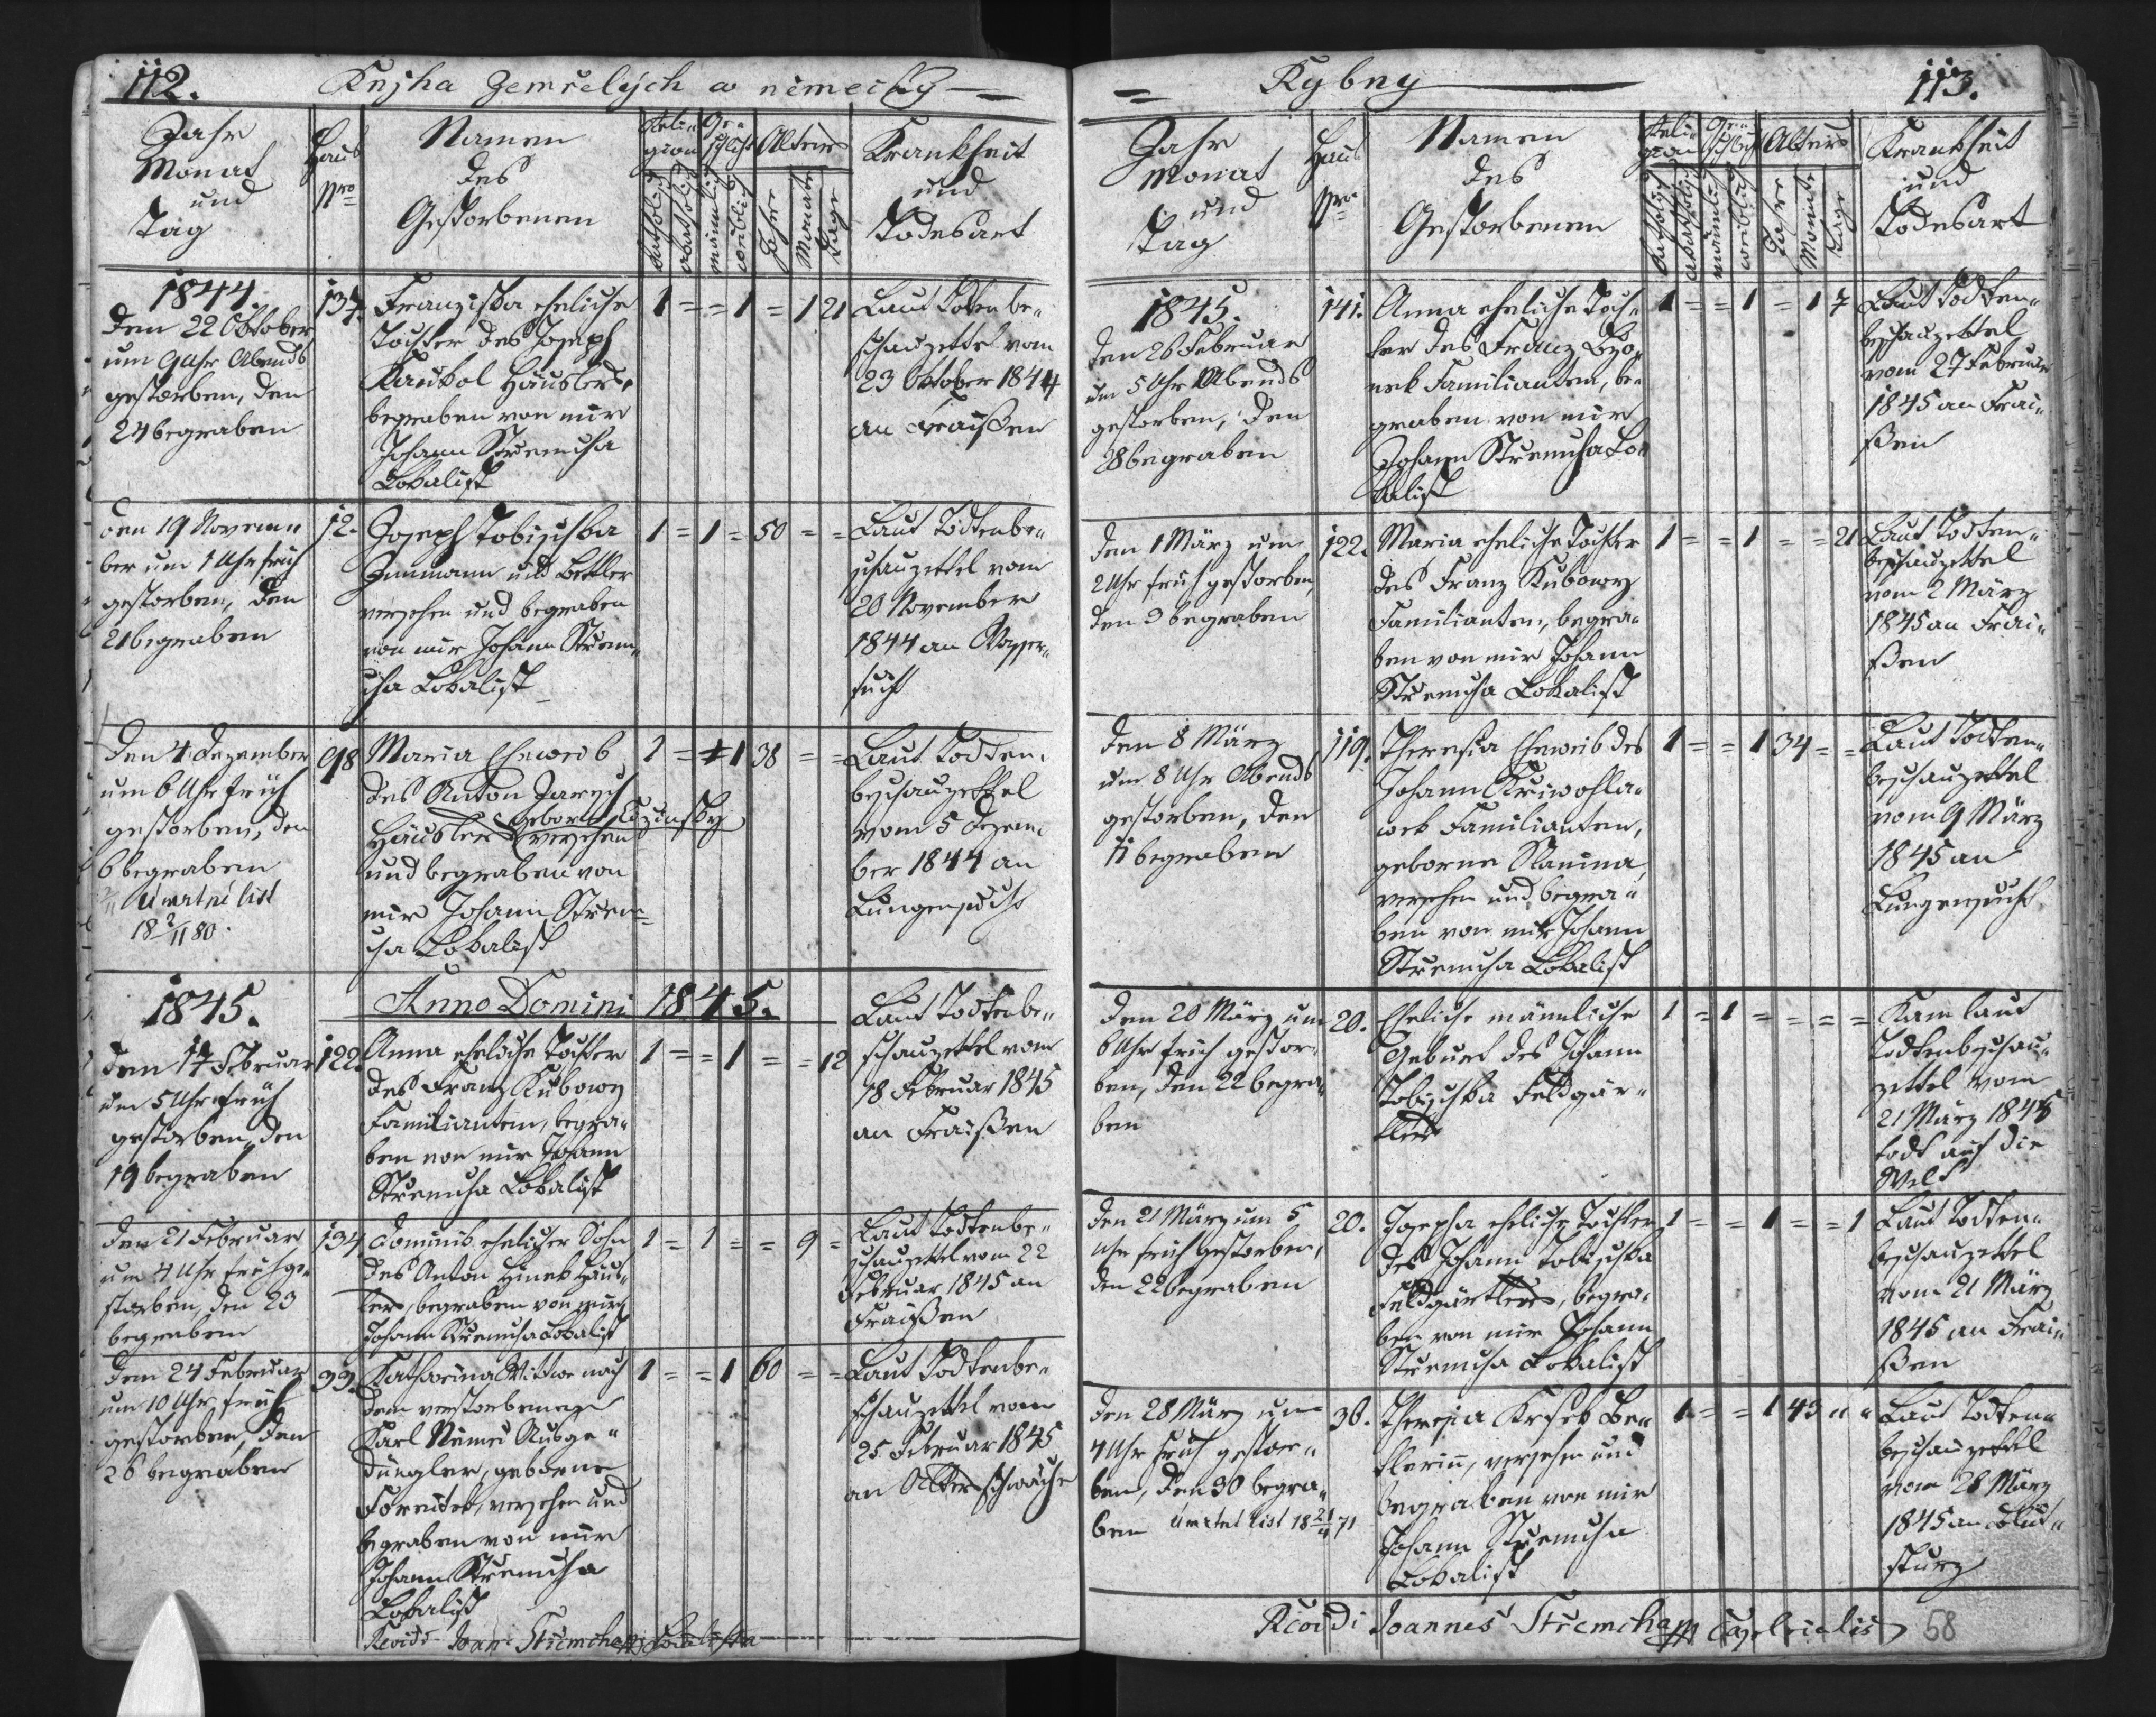 112.
Knjha Zemřelých w německy
Jahr
Monat
und
Tag
Haus
Nro
Namen
des
Gestorbenen
Reli-
gion
Ge-
schlecht
Alters
katholisch
akatholisch
männlich
weiblich
Jahre
Monate
Tage
Krankheit
und
Todesart
1844.
den 22 Oktober
um 9 Uhr Abends
gestorben, den
24 begraben
137.
Franziska eheliche
Tochter des Joseph
Häuslers,
begraben von mir
Johann Stremcha
Lokalist
1 = = 1 = 1 21
Laut Todtenbe-
schauzettel vom
23 Oktober 1844
an Fraißen
den 19 Novem-
ber um 1 Uhr früh
gestorben, den
21 begraben
12.
Joseph Tobischka
Inmann und Bettler
versehen und begraben
von mir Johann Strem-
cha Lokalist
1 = 1 = 50 = =
Laut Todtenbe-
schauzettel vom
20 November
1844 an Wasser-
sucht
den 4 Dezember
um 6 Uhr früh
gestorben, den
6 begraben
Úmrtní list
18 2/11 80.
98
Maria Eheweib
des Anton Jarosch
Häusler geborne
versehen
und begraben von
mir Johann Strem-
cha Lokalist
1 = 1 38 = =
Laut Todten-
beschauzettel
vom 5 Dezem-
ber 1844 an
Lungensucht
1845.
Anno Domini 1845.
den 17 Februar
um 5 Uhr früh
gestorben, den
19 begraben
122.
Anna eheliche Tochter
des Franz Kubowy
Familianten, begra-
ben von mir Johann
Stremcha Lokalist
1 = = 1 = = 12
Laut Todtenbe-
schauzettel vom
18 Februar 1845
an Fraißen
den 21 Februar
um 4 Uhr früh ge-
storben, den 23
begraben
134.
Dominik ehelicher Sohn
des Anton Hinek Häus-
lers, begraben von mir
Johann Stremcha Lokalist
1 = 1 = = 9 =
Laut Todtenbe-
schauzettel vom 22
Februar 1845 an
Fraißen
den 24 Februar
um 10 Uhr früh
gestorben, den
26 begraben
33.
Katharina Wittwe nach
dem verstorbenen
Karl Němec Ausge-
dingler, geborne
versehen und
begraben von mir
Johann Stremcha
Lokalist
1 = = 1 60 = =
Laut Todtenbe-
schauzettel vom
25 Februar 1845
an Altersschwäche
Joan Střemcha
Rybny
113.
Jahr
Monat
und
Tag
Haus
Nro
Namen
des
Gestorbenen
Reli-
gion
Ge-
schlecht
Alters
katholisch
akatholisch
männlich
weiblich
Jahre
Monate
Tage
Krankheit
und
Todesart
1845.
den 26 Februar
um 5 Uhr Abends
gestorben, den
28 begraben
141.
Anna eheliche Toch-
ter des Franz
Familianten, be-
graben von mir
Johann Stremcha Lo-
kalist
1 = = 1 = 1 7
Laut Todten-
beschauzettel
vom 27 Februar
1845 an Frai-
ßen
den 1 März um
2 Uhr früh gestorben,
den 3 begraben
122.
Maria eheliche Tochter
des Franz Kubowy
Familianten, begra-
ben von mir Johann
Stremcha Lokalist
1 = = 1 = = 21
Laut Todten-
beschauzettel
vom 2 März
1845 an Frai-
ßen
den 8 März
um 8 Uhr Abends
gestorben, den
11 begraben
119.
Theresia Eheweib des
Johann Kriwohla-
wek Familianten,
geborne Slanina,
versehen und begra-
ben von mir Johann
Stremcha Lokalist
1 = = 1 34 = =
Laut Todten-
beschauzettel
vom 9 März
1845 an
Lungensucht
den 20 März um
6 Uhr früh gestor-
ben, den 22 begra-
ben
20.
Eheliche männliche
Geburt des Johann
Tobischka Feldgär-
tler
1 = 1 = = = =
Kam laut
Todtenbeschau-
zettel vom
21 März 1845
todt auf die
Welt
den 21 März um 5
Uhr früh gestorben,
den 22 begraben
20.
Josepha eheliche Tochter
des Johann Tobischka
Feldgärtlers, begra-
ben von mir Johann
Stremcha Lokalist
1 = = 1 = = 1
Laut Todten-
beschauzettel
vom 21 März
1845 an Frai-
ßen
den 28 März um
4 Uhr früh gestor-
ben, den 30 begra-
ben Úmrtní list 18 21/4 71
36.
Theresia Krsek Be-
ttlerin, versehen und
begraben von mir
Johann Stremcha
Lokalist
1 = = 1 43 " "
Laut Todten-
beschauzettel
vom 28 März
1845 an Blut-
sturz
Joannes Střemcha
58